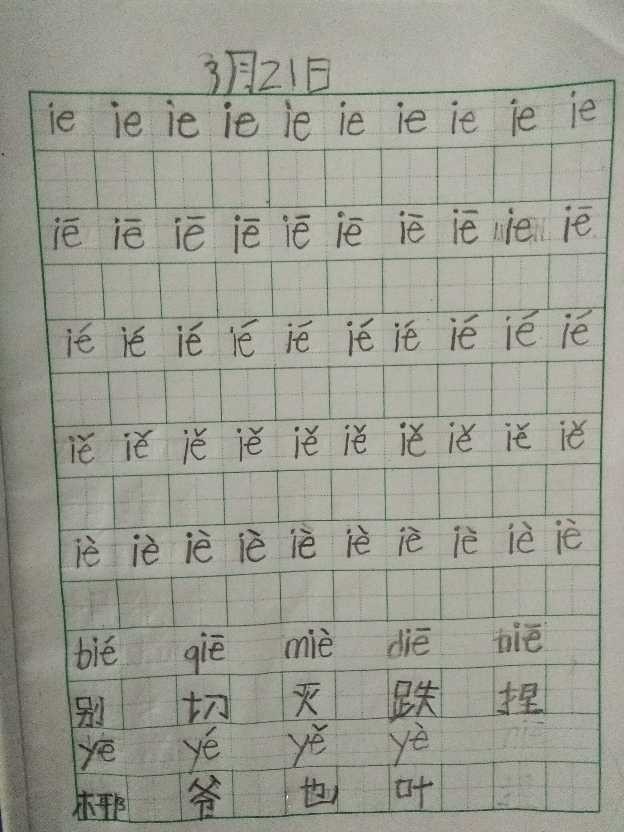 3月21日
ie ie ie ie ie ie ie ie ie ie
iē iē iē iē iē iē iē iē ie iē
ié ié ié ié ié ié ié ié ié ié
iě iě iě iě iě iě iě iě iě iě
iè iè iè iè iè iè iè iè iè iè
bié qiē miè diē niē
别 切 灭 跌 捏
yē yé yě yè
椰 爷 也 叶